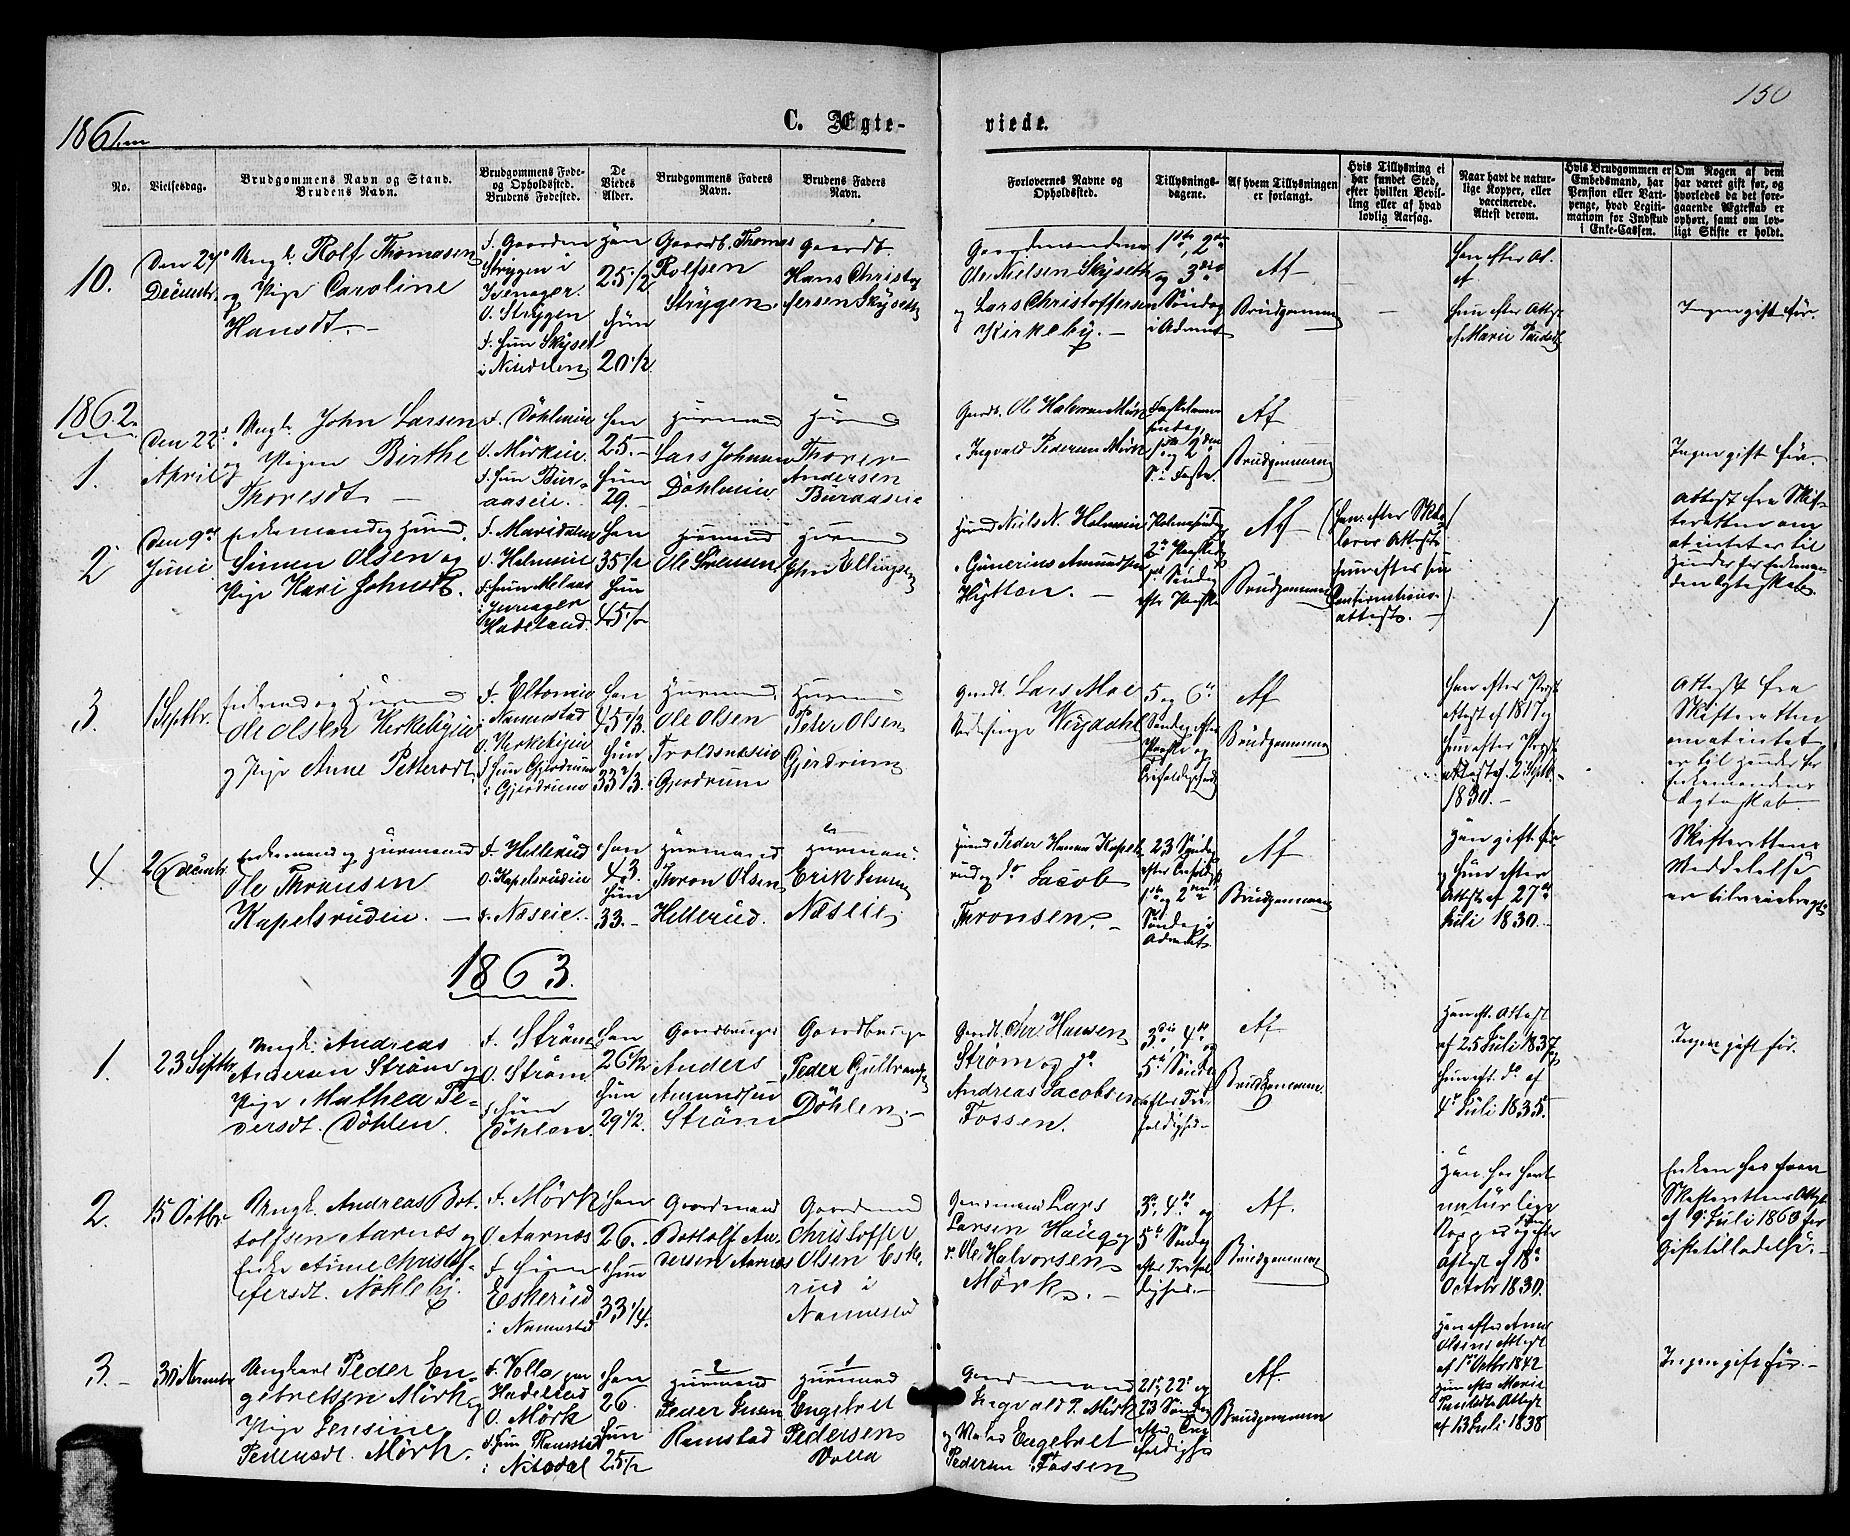 150
1861.
C. Ægte-
viede.
No.
Vielsesdag.
Brudgommens Navn og Stand.
Brudens Navn.
Brudgommens Føde-
og Opholdssted.
Brudens Fødested.
De
Viedes
Alder.
Brudgommens Faders
Navn.
Brudens Faders
Navn.
Forlovernes Navne og
Opholdssted.
Tillysnings-
dagene.
Af hvem Tillysningen
er forlangt.
Hvis Tillysning ei
har fundet Sted,
efter hvilken Bevil-
ling eller af hvad
lovlig Aarsag.
Naar havt de natur-
lige Kopper, eller
vaccinerede.
Attest derom.
Hvis Brudgommen er
Embedsmand, har
Pension eller Vart-
penge, hvad Legiti-
mation for Indskud
i Enke-Cassen.
Om Nogen af dem
har været gift før, og
hvorledes da det fore-
gaaende Ægteskab er
ophørt, samt om lov-
ligt Skifte er holdt.
10.
Den 27
Decembr.
Ungk. Rolf Thomasen
og Pige Caroline
Hansdt.
f. Gaarden
Strygen i
O. Strygen
f. hun Skyset
i Nitedalen
Han
25 1/2
Hun
20 1/2
Gaardb. Thomas
Rolfsen
Strygen.
Gaardb.
Hans Christof
fersen Skyseth
Gaardmændene
Ole Nielsen Skyseth
og Lars Christoffersen
Kirkeby.
1ste, 2den
og 3die
Søndag
i Advent
Af
Brudgommen
Hun efter Attest
af Marie Paulsdt
Ingen gift før.
1862.
1.
Den 22
April
Ungk. John Larsen
og Pigen Birthe
Thoresdt.
f. Döhleneie
O. Mörkeie.
f. hun Bur-
aaseie.
Han
25.
Hun
29.
Husmand
Lars Johnsen
Döhleneie
Husmd
Thorer
Andersen
Buraaseie
Gaardb. Ole Halvorsen Mörk
Ingvald Pedersen Mörk
Fastelavns
søndag,
1ste og 2den
S. i Faste.
Af
Brudgommen
Ingen gift før.
2
Den 9de
Juni
Enkemand og Husmd.
Simen Olsen og
Pige Kari Johnsdt.
f. Maridalen
O. Holmeie
Hadeland.
Han
35 1/2
Hun
45 1/2
Husmand
Ole Simensen
Husmd
John Ellingsen
Husmd Niels N. Holmeie
Gunerius Amundsen
Hytten.
Palmesøndag
2den Paaskedag
1ste Søndag
efter Paaske
Af
Brudgommen
Han efter Skole-
lærer Attest
Hun efter sin
Confirmations-
attest.
Attest fra Skif-
teretten om
at intet er til
Hinder for Enkeman-
den Egteskab.
3.
1 Septbr.
Enkemd og Husmand
Ole Olsen Kirkebyeie
og Pige Anne Pettersdt.
f. Eltoneie
i Nannestad
O. Kirkebyeie
f. hun Gjerdrum
i Gjerdrum
Han
45 1/3.
Hun
33 2/3.
Husmand
Ole Olsen
Troldsnæseie
Gjerdrum
Husmand
Peter Olsen
Gjerdrum
Gaardb. Lars Moe
Kirkesanger Wigdahl
5 og 6te
Søndag efter
Paaske og
Trefoldighed
Af
Brudgommen
Han efter Præst
attest af 1817 og
Hun efter Præst
attest af 2 Septb.
1830.
Attest fra
Skifteretten
om at intet
er til Hinder for
Enkemandens
Egteskab
4.
26 Decembr.
Enkemand og Husmand
Ole Thronsen
Kapelsrudeie.
f. Hellerud
O. Kapelsrudeie
f. Næseie.
Han
43.
Hun
33.
Husmand
Thron Olsen
Hellerud.
Husman.
Erik
Næseie.
Husmd Peder Hansen Kapels
rud og do Jacob
Thronsen.
23 Søndag
efter Trefoldigh
1ste og 2den
Søndag i
Advent
Af
Brudgommen
Han gift før
og Hun efter
Attest af 27de
Juli 1830.
Skifterettens
Meddelelse
er tilveiebragt
1863.
1.
23 Septbr
Ungk. Andreas
Andersen Ström og
Pige Mathea Pe-
dersdt. Döhlen.
f. Ström
O. Ström
f. Hun
Döhlen.
Han
26 1/2
Hun
29 1/2.
Gaardbruger
Anders
Amundsen
Ström
Gaardbruger
Peder Gulbrandsen
Döhlen.
Gaardb. Hansen
Ström og do
Andreas Jacobsen
Fossen.
3die, 4de og
5te Søndag
efter Tre-
foldighed
Af
Brudgommen.
Han eft. Attest
af 25 Juli 1837
Hun eft. do af
4 Juli 1835.
Ingen gift før.
2.
15 Octbr
Ungk. Andreas Bot-
tolfsen Aarnæs og
Enke Anne Christof-
fersdt. Nökleby.
f. Mörk
O. Aarnæs
f. Hun
Eskerud
i Nannestad
Han
26.
Hun
33 1/4.
Gaardmand
Bottolf An-
dersen Aarnæs
Gaardmand
Christoffer
Olsen Eske-
rud i
Nannestad
Gaardmand Lars
Larsen Haug og
Ole Halvorsen
Mörk.
3die, 4de og
5te Søndag
efter Trefol-
dighed.
Af.
Brudgommen
Han har havt
naturlige
Kopper og Hun efter
Attest af 18de
Octobr 1830.
Enken har fra
Skifterettens Attest
af 9 Juli 1863 før
Giftetilladelse.
3.
30 Novembr
Ungkarl Peder En-
gebretsen Mörk og
Pige Jensine
Pedersdt. Mörk.
f. Volla paa
Hadeland
O. Mörk
f. hun Ramstad
i Nitedal
Han
26.
Hun
25 1/2
Husmand
Peder
Ramstad
Husmand
Engebret
Pedersen
Volla
Gaardmand
Ingvald P. Mörk
og Engebret
Pedersen Fossen
21de, 22de og
23 Søndag
efter Tre-
foldighed
Af.
Brudgommen
Han efter Anne
Olsens Attest
af 1 Octbr 1842
Hun efter Marie
Paulsdts Attest
af 13 Juli 1838
Ingen gift før.